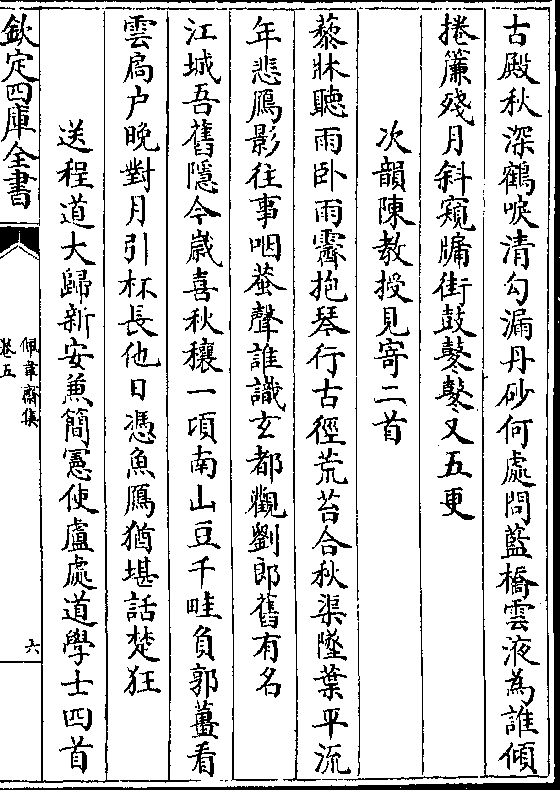 古殿秋深鶴唳清勾漏丹砂何處問藍橋雲液為誰傾
捲簾殘月斜窺牖街鼓鼕鼕又五更
次韻陳教授見寄二首
藜牀聽雨卧雨霽抱琴行古徑荒苔合秋渠墜葉平流
年悲鴈影往事咽蛩聲誰識玄都觀劉郎舊有名
江城吾舊隱今嵗喜秋穰一項南山豆千畦負郭薑看
雲扃户晚對月引杯長他日憑魚鴈猶堪話楚狂
送程道大歸新安兼簡憲使盧處道學士四首
欽定四庫全書
佩韋齋集
卷五
六